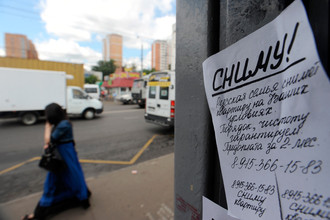 СНИМУ!
Русская семья снимет
квартиру на Ваших
условиях
Порядок, чистоту
гарантируем
Предоплата за 2 мес.
8-915-366-15-83
8-915-366-15-83
СНИМУ
квартиру
8-915-366-15-83